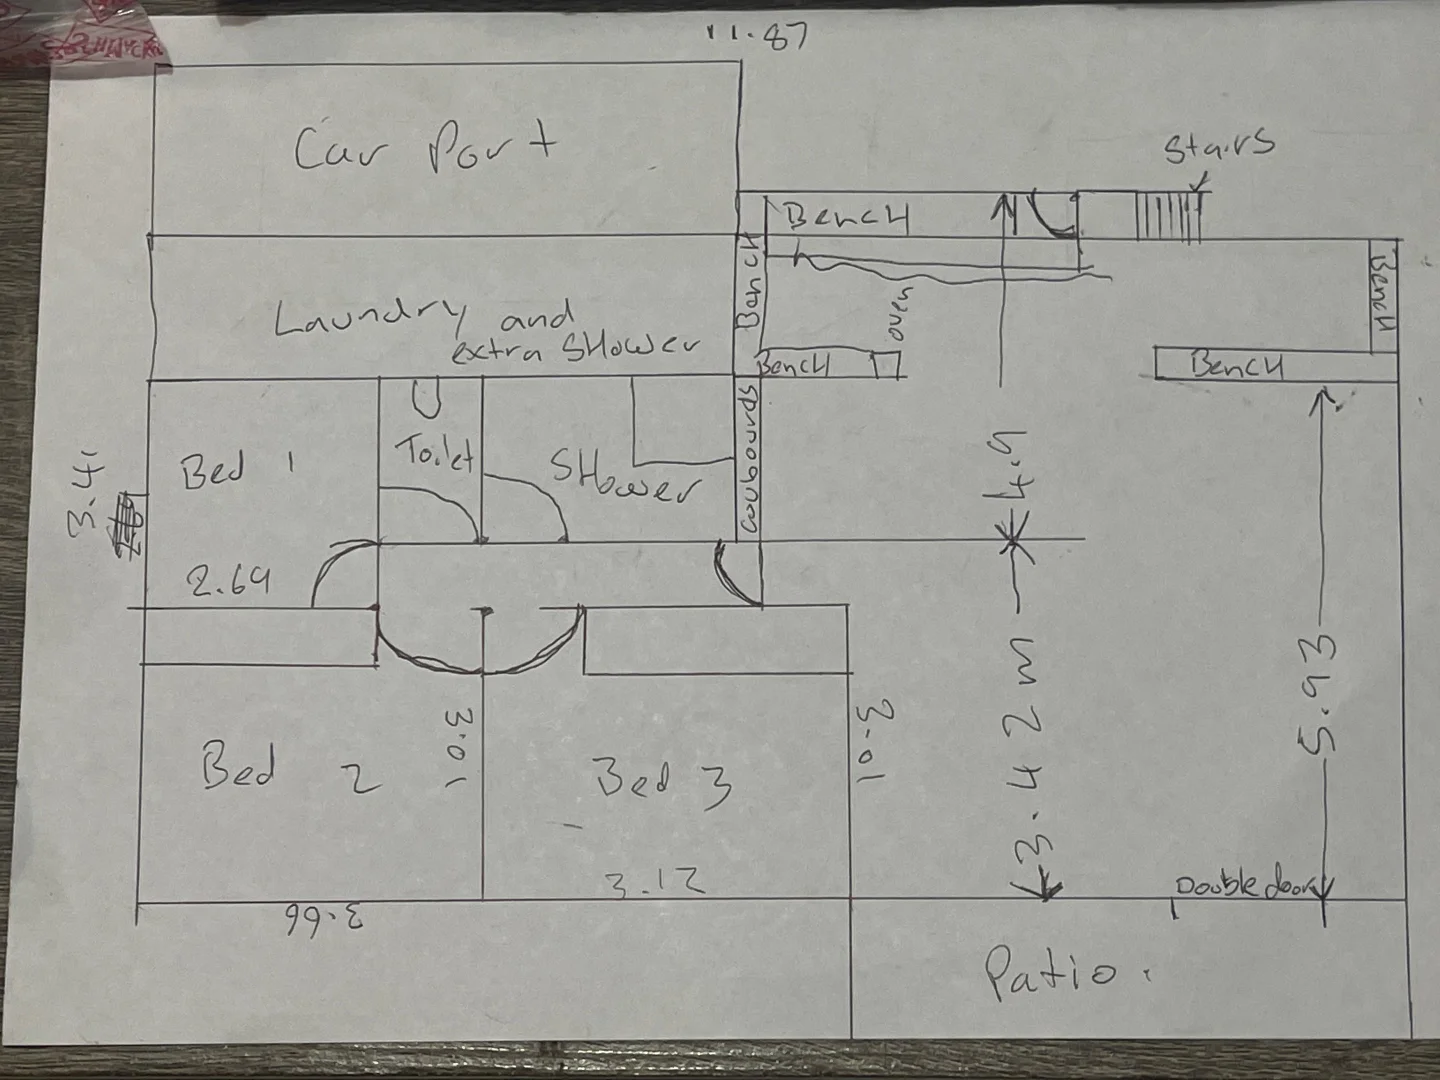 11.87
Car Port
Stairs
Bench
Bench
Bench
Laundry and
extra Shower
oven
Bench
Bench
Bed 1
Toilet
Shower
Coubourds
3.41
4.9
2.69
3.42m
5.93
Bed 2
3.01
Bed 3
3.01
3.12
3.66
Double door
Patio.